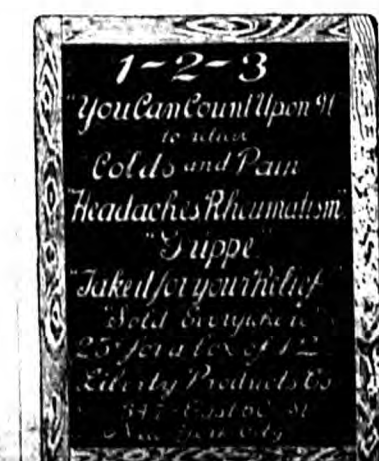 1-2-3
"You Can Count Upon It"
to relieve
Colds and Pain
"Headaches, Rheumatism"
"Grippe"
"Take it for your Relief"
"Sold Everywhere"
25¢ for a box of 12
Liberty Products Co
East St
New York City